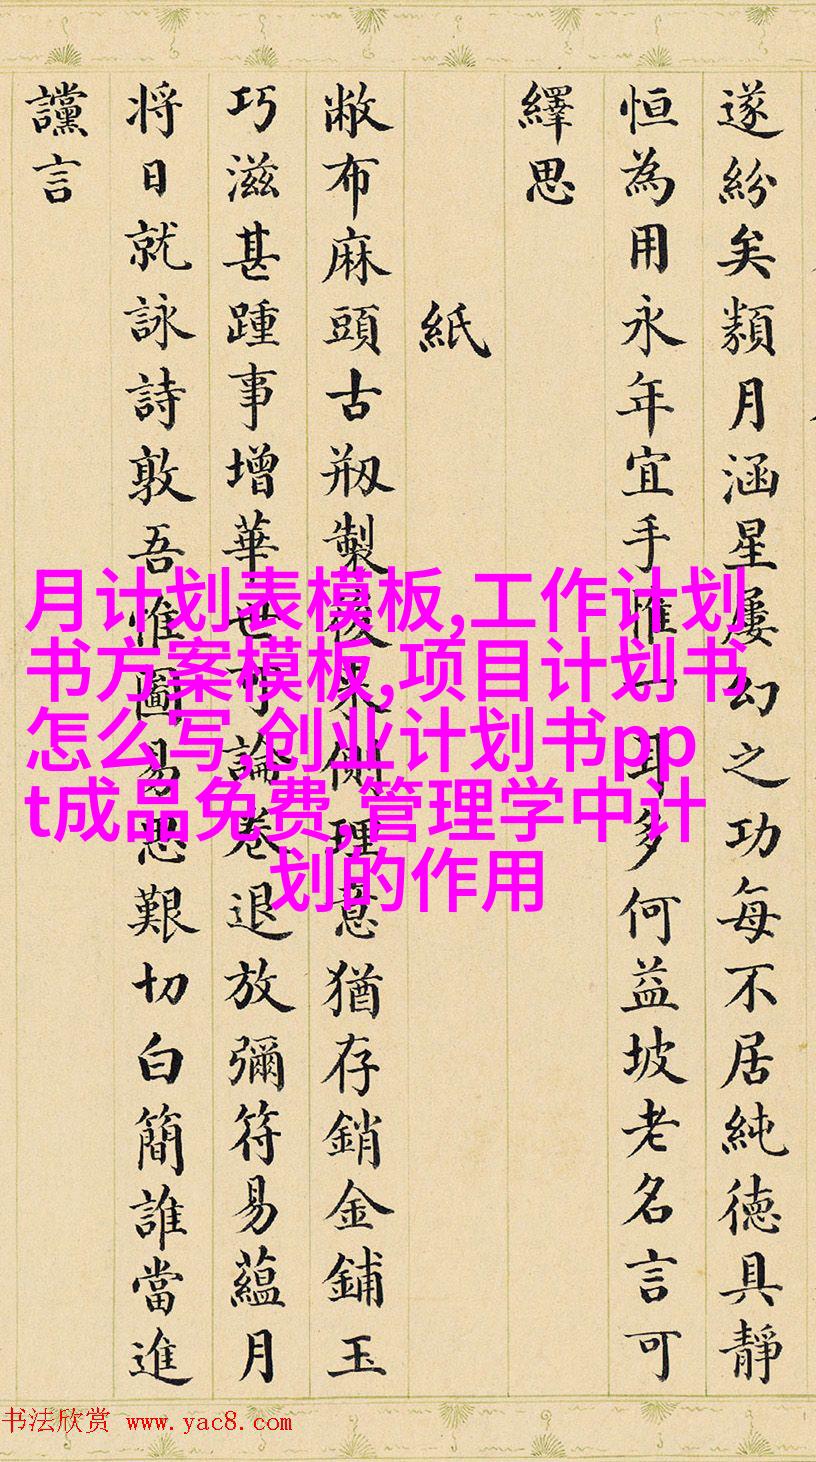 遂紛矣類月涵星屢幻之功每不居純德具靜
恒為用永年宜手惟一耳多何益坡老名言可
繹思
紙
敝布麻頭古剏製後來側理意猶存銷金鋪玉
巧滋甚踵事增華世可論卷退放彌符易蘊月
将日就詠詩敦吾惟圖易思艱切白簡誰當進
讜言
月计划表模板,工作计划
书方案模板,项目计划书
怎么写,创业计划书pp
t成品免费,管理学中计
划的作用
书法欣赏 www.yac8.com